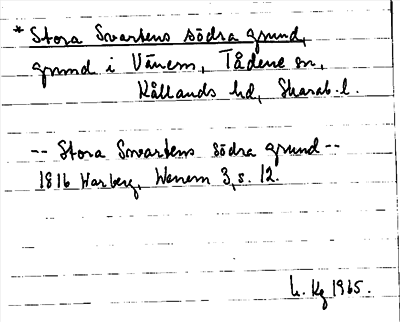 * Stora Svartens södra grund,
grund i Vänern, Tådene sn,
Kållands hd, Skarab. l.
-- Stora Svartens södra grund --
1816 Warberg, Wenern 3, s. 12.
L. Kg 1965.